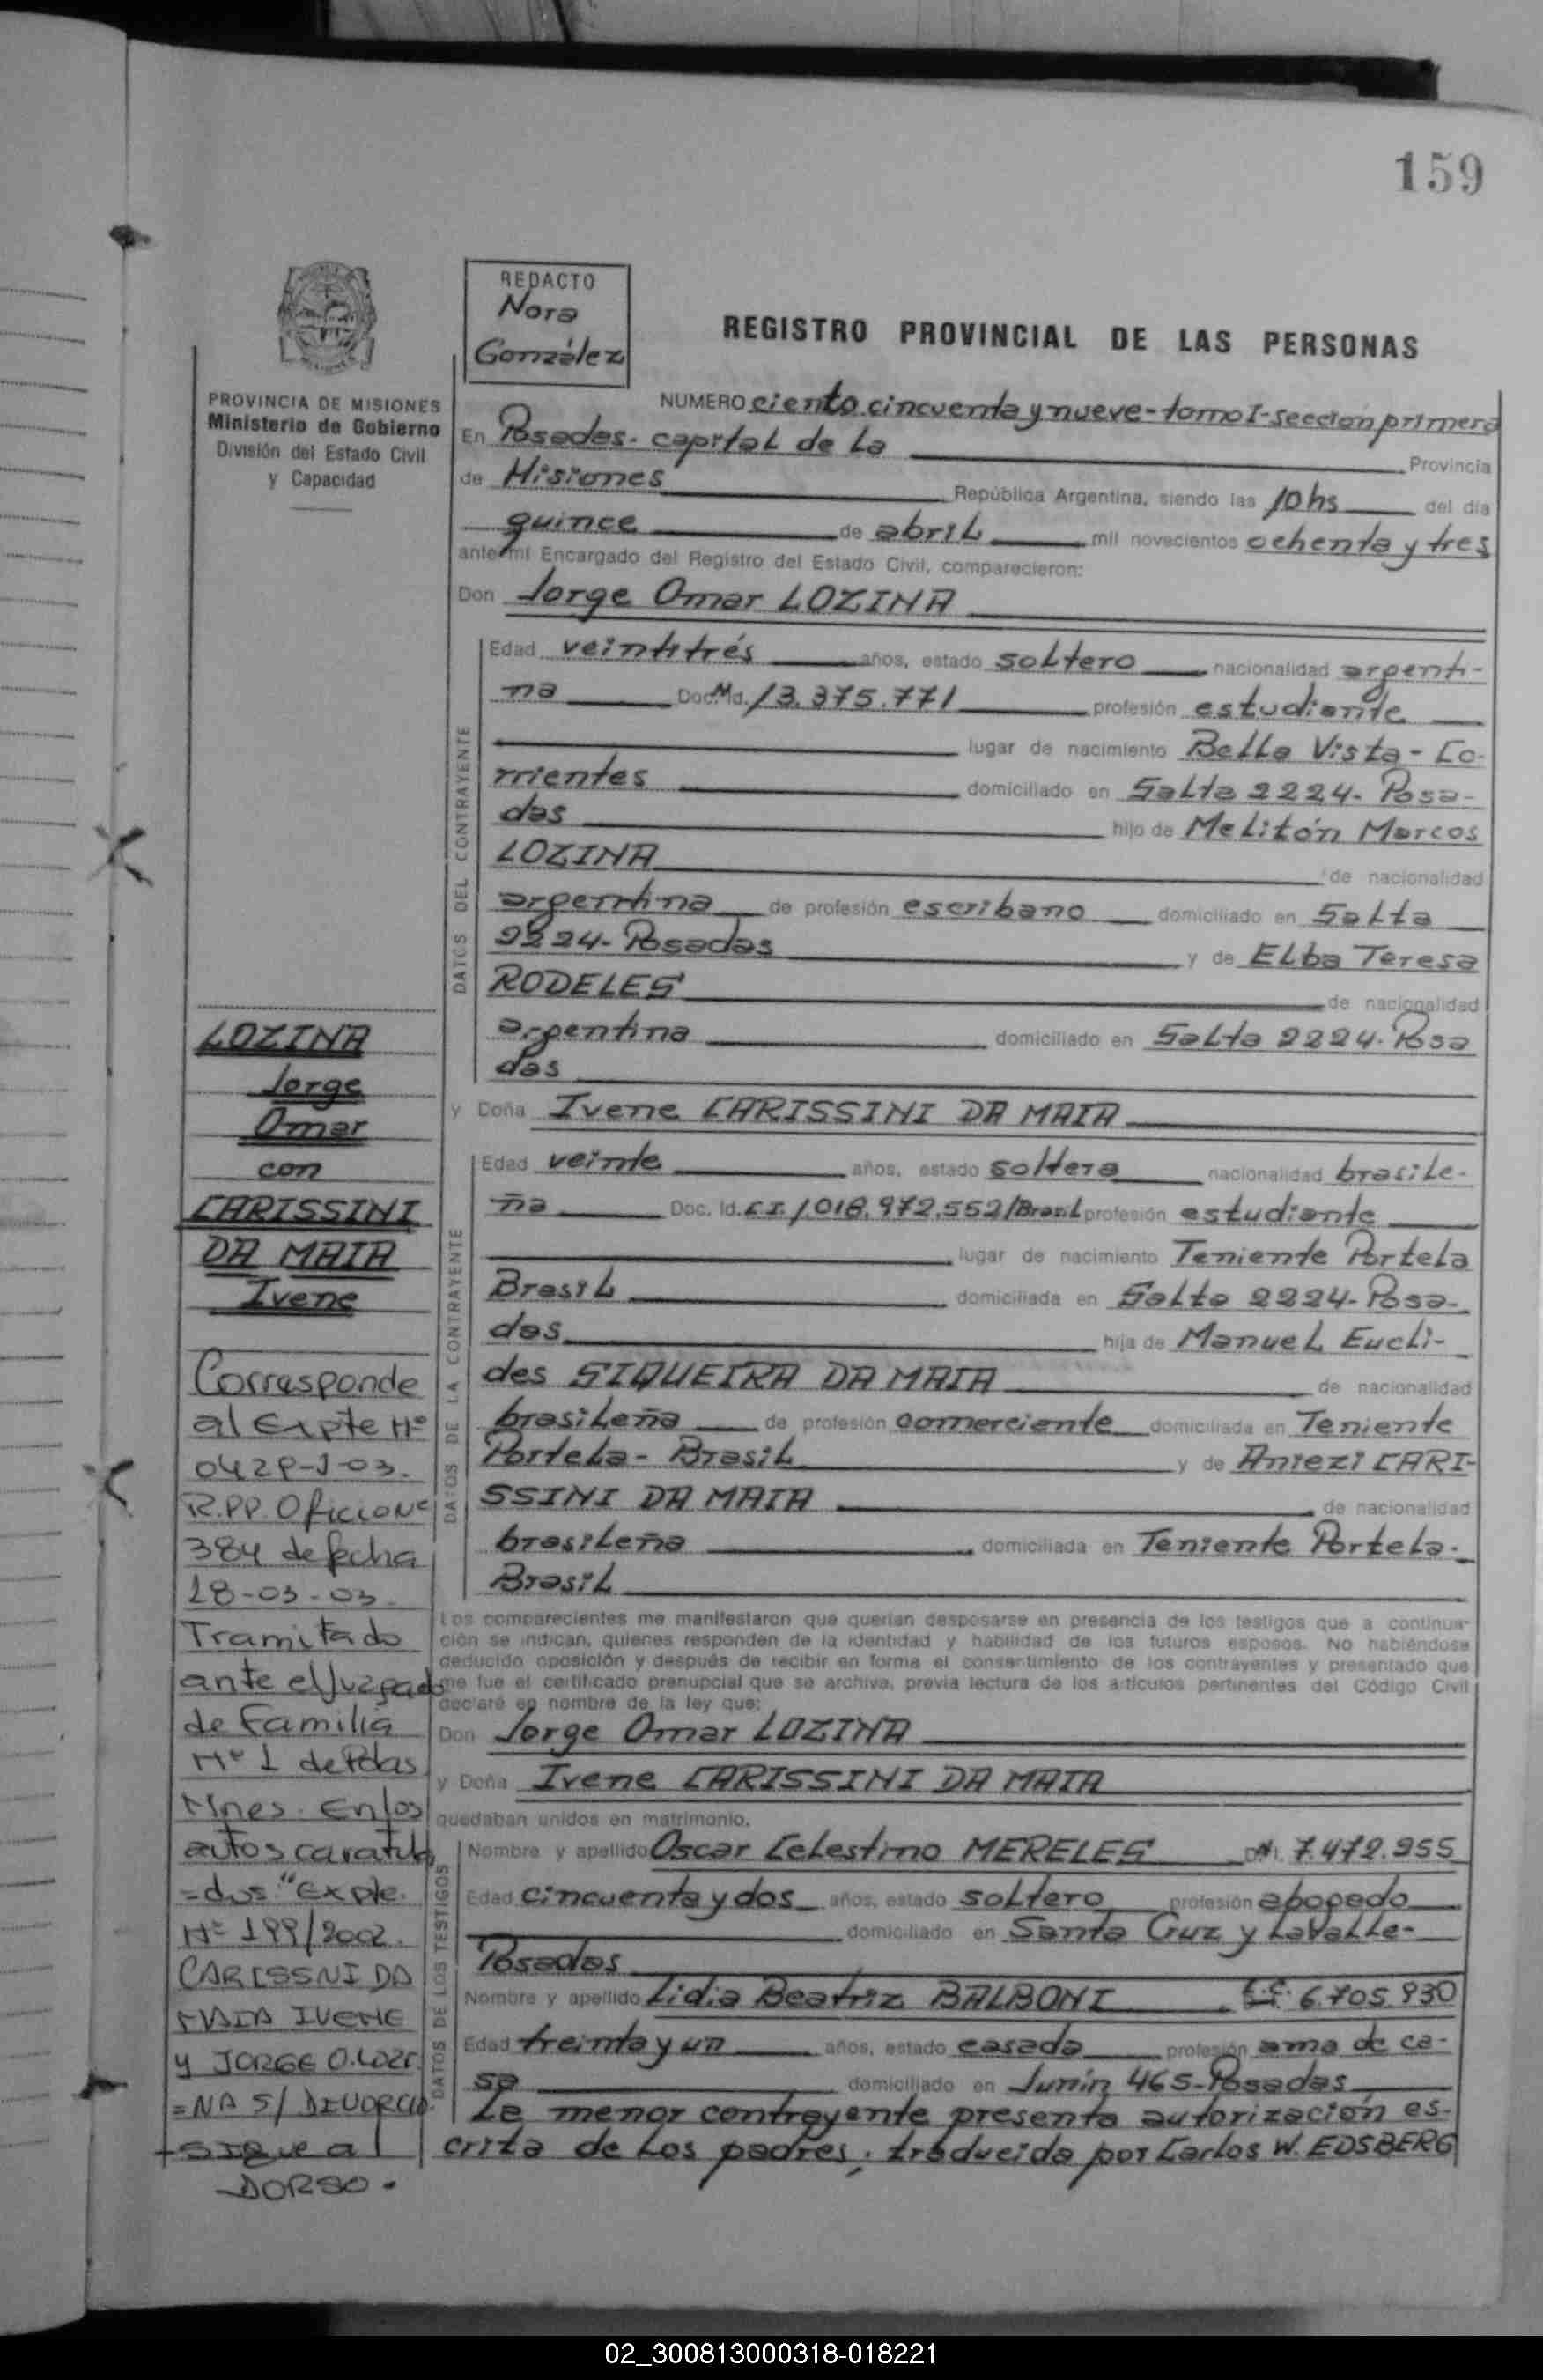 159
REDACTO
Nora
González
REGISTRO PROVINCIAL DE LAS PERSONAS
PROVINCIA DE MISIONES
Ministerio de Gobierno
División del Estado Civil
y Capacidad
NUMERO ciento cincuenta y nueve-tomo I-sección primera
En Posadas-capital de la Provincia
de Misiones República Argentina, siendo las 10 hs del día
quince de abril mil novecientos ochenta y tres
ante mi Encargado del Registro del Estado Civil, comparecieron:
Don Jorge Omar LOZINA
DATOS DEL CONTRAYENTE
Edad veintitrés años, estado soltero nacionalidad argenti-
na Doc. Id. 13.375.771 profesión estudiante
lugar de nacimiento Bella Vista-Co-
rrientes domiciliado en Salta 2224-Posa-
das hijo de Melitón Marcos
LOZINA de nacionalidad
argentina de profesión escribano domiciliado en Salta
2224-Posadas y de Elba Teresa
RODELES de nacionalidad
argentina domiciliado en Salta 2224-Posa
das
y Doña Ivene CARISSINI DA MAIA
DATOS DE LA CONTRAYENTE
Edad veinte años, estado soltera nacionalidad brasile-
ña Doc. Id. C.I. 1.018.972.552/Brasil profesión estudiante
lugar de nacimiento Teniente Portela
Brasil domiciliada en Salta 2224-Posa-
das hija de Manuel Eucli-
des SIQUEIRA DA MAIA de nacionalidad
brasileña de profesión comerciante domiciliada en Teniente
Portela-Brasil y de Aniezi CARI-
SSINI DA MAIA de nacionalidad
brasileña domiciliada en Teniente Portela-
Brasil
Los comparecientes me manifestaron que querían desposarse en presencia de los testigos que a continua-
ción se indican, quienes responden de la identidad y habilidad de los futuros esposos. No habiéndose
deducido oposición y después de recibir en forma el consentimiento de los contrayentes y presentado que
me fue el certificado prenupcial que se archiva, previa lectura de los artículos pertinentes del Código Civil
declaré en nombre de la ley que:
Don Jorge Omar LOZINA
y Doña Ivene CARISSINI DA MAIA
quedaban unidos en matrimonio.
DATOS DE LOS TESTIGOS
Nombre y apellido Oscar Celestino MERELES 7.472.955
Edad cincuenta y dos años, estado soltero profesión abogado
domiciliado en Santa Cruz y Lavalle-
Posadas
Nombre y apellido Lidia Beatriz BALBONI 6.705.930
Edad treinta y un años, estado casada profesión ama de ca-
sa domiciliado en Junín 465-Posadas
La menor contrayente presenta autorización es-
crita de los padres; traducida por Carlos W. EDSBERG
LOZINA
Jorge
Omar
con
CARISSINI
DA MAIA
Ivene
Corresponde
al Expte Nº
R.PP. Oficio Nº
384 de fecha
28-03-03.
Tramitado
ante el Juzgado
de Familia
Nº 1 de Pdas
Mnes. En los
autos caratula
=dos "Expte.
Nº 199/2002.
CARISSNI DA
MAIA IVENE
y JORGE O. LOZI
=NA S/ DIVORCIO.
+SIGUE al
DORSO.
02_300813000318-018221